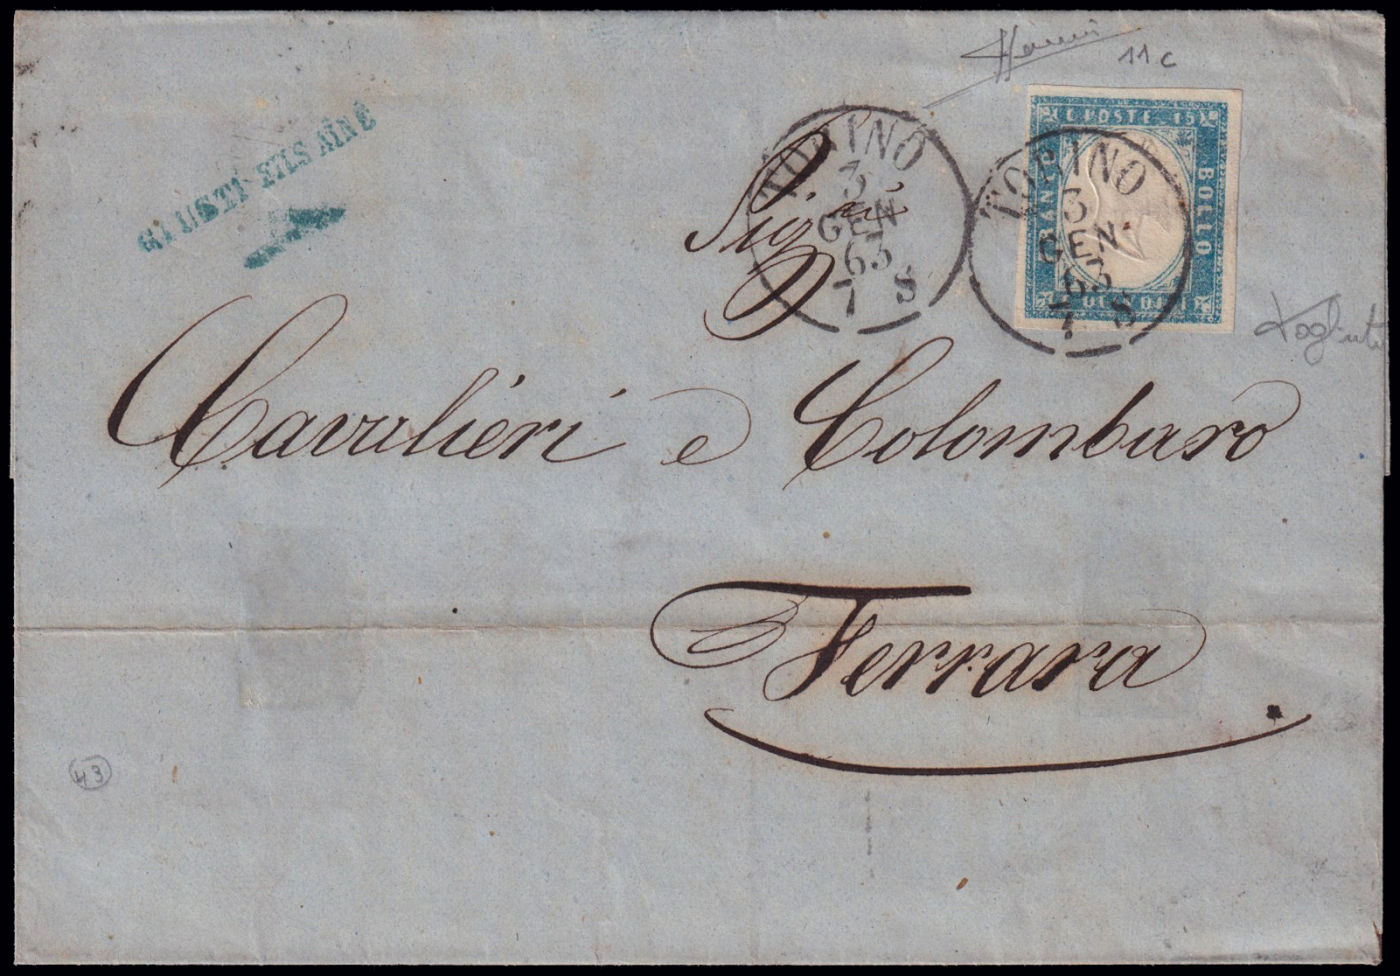 11c
GIUSTI FILS AINÉ
TORINO
3
GEN
63
7 S
C. POSTE 15
BOLLO
FRANCO
DI
TORINO
3
GEN
63
7 S
Sigri
Cavalieri e Colombaro
Ferrara.
43